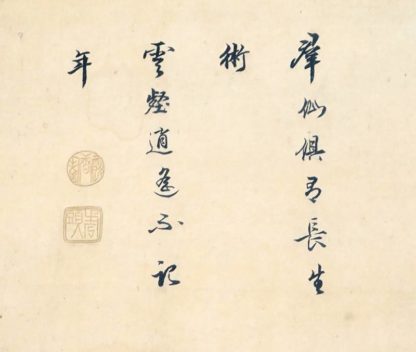 群仙俱有長生
術
雲壑逍遙不記
年